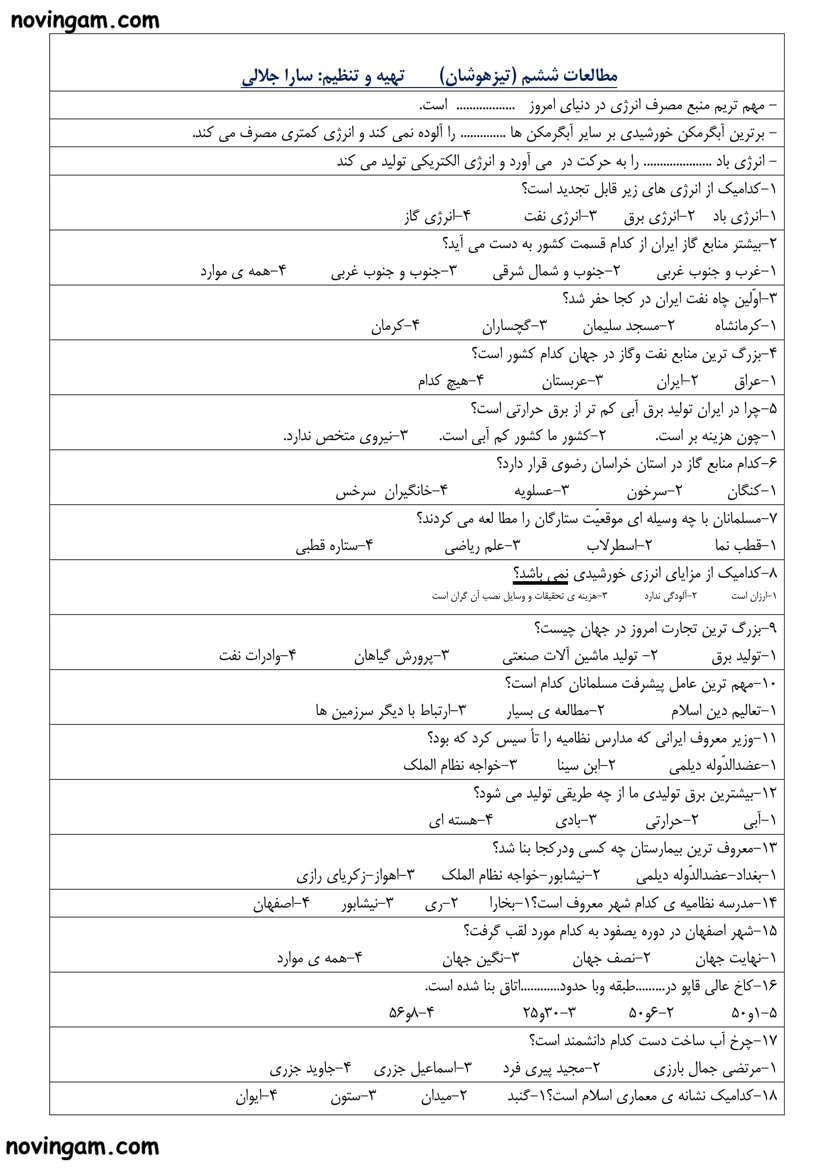 novingam.com
مطالعات ششم (تیزهوشان) تهیه و تنظیم: سارا جلالی
- مهم تریم منبع مصرف انرژی در دنیای امروز .................. است.
- برترین آبگرمکن خورشیدی بر سایر آبگرمکن ها .............. را آلوده نمی کند و انرژی کمتری مصرف می کند.
- انرژی باد ..................... را به حرکت در می آورد و انرژی الکتریکی تولید می کند
۱-کدامیک از انرژی های زیر قابل تجدید است؟
۱-انرژی باد ۲-انرژی برق ۳-انرژی نفت ۴-انرژی گاز
۲-بیشتر منابع گاز ایران از کدام قسمت کشور به دست می آید؟
۱-غرب و جنوب غربی ۲-جنوب و شمال شرقی ۳-جنوب و جنوب غربی ۴-همه ی موارد
۳-اوّلین چاه نفت ایران در کجا حفر شد؟
۱-کرمانشاه ۲-مسجد سلیمان ۳-گچساران ۴-کرمان
۴-بزرگ ترین منابع نفت وگاز در جهان کدام کشور است؟
۱-عراق ۲-ایران ۳-عربستان ۴-هیچ کدام
۵-چرا در ایران تولید برق آبی کم تر از برق حرارتی است؟
۱-چون هزینه بر است. ۲-کشور ما کشور کم آبی است. ۳-نیروی متخص ندارد.
۶-کدام منابع گاز در استان خراسان رضوی قرار دارد؟
۱-کنگان ۲-سرخون ۳-عسلویه ۴-خانگیران سرخس
۷-مسلمانان با چه وسیله ای موقعیّت ستارگان را مطا لعه می کردند؟
۱-قطب نما ۲-اسطرلاب ۳-علم ریاضی ۴-ستاره قطبی
۸-کدامیک از مزایای انرزی خورشیدی نمی باشد؟
۱-ارزان است ۲-آلودگی ندارد ۳-هزینه ی تحقیقات و وسایل نصب آن گران است
۹-بزرگ ترین تجارت امروز در جهان چیست؟
۱-تولید برق ۲- تولید ماشین آلات صنعتی ۳-پرورش گیاهان ۴-وادرات نفت
۱۰-مهم ترین عامل پیشرفت مسلمانان کدام است؟
۱-تعالیم دین اسلام ۲-مطالعه ی بسیار ۳-ارتباط با دیگر سرزمین ها
۱۱-وزیر معروف ایرانی که مدارس نظامیه را تأ سیس کرد که بود؟
۱-عضدالدّوله دیلمی ۲-ابن سینا ۳-خواجه نظام الملک
۱۲-بیشترین برق تولیدی ما از چه طریقی تولید می شود؟
۱-آبی ۲-حرارتی ۳-بادی ۴-هسته ای
۱۳-معروف ترین بیمارستان چه کسی ودرکجا بنا شد؟
۱-بغداد-عضدالدّوله دیلمی ۲-نیشابور-خواجه نظام الملک ۳-اهواز-زکریای رازی
۱۴-مدرسه نظامیه ی کدام شهر معروف است؟۱-بخارا ۲-ری ۳-نیشابور ۴-اصفهان
۱۵-شهر اصفهان در دوره یصفود به کدام مورد لقب گرفت؟
۱-نهایت جهان ۲-نصف جهان ۳-نگین جهان ۴-همه ی موارد
۱۶-کاخ عالی قاپو در.........طبقه وبا حدود............اتاق بنا شده است.
۱-۵و۵۰ ۲-۶و۵۰ ۳-۳۰و۲۵ ۴-۸و۵۶
۱۷-چرخ آب ساخت دست کدام دانشمند است؟
۱-مرتضی جمال بارزی ۲-مجید پیری فرد ۳-اسماعیل جزری ۴-جاوید جزری
۱۸-کدامیک نشانه ی معماری اسلام است؟۱-گنبد ۲-میدان ۳-ستون ۴-ایوان
novingam.com